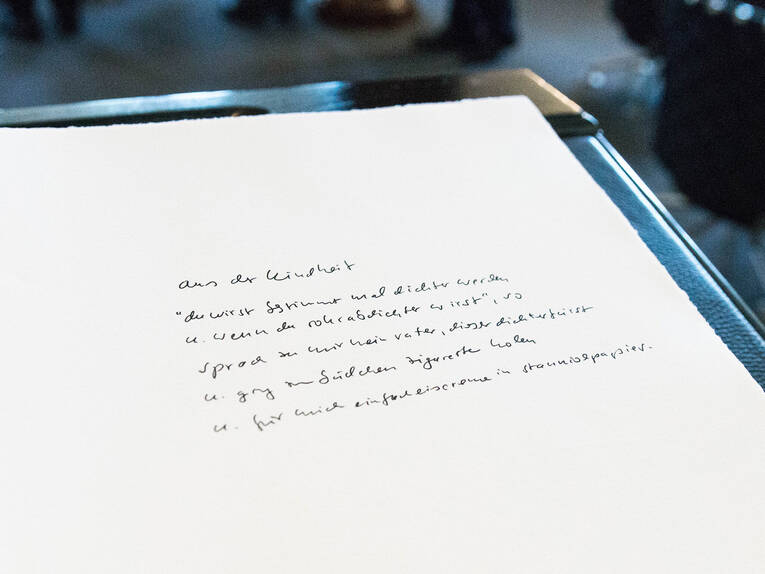 aus der kindheit
"du wirst bestimmt mal dichter werden
u. wenn du rohrabdichter wirst", so
sprach zu mir mein vater, dieser dichterfürst
u. ging zum büdchen zigarette holen
u. für mich einfach eiscreme in stanniolpapier.